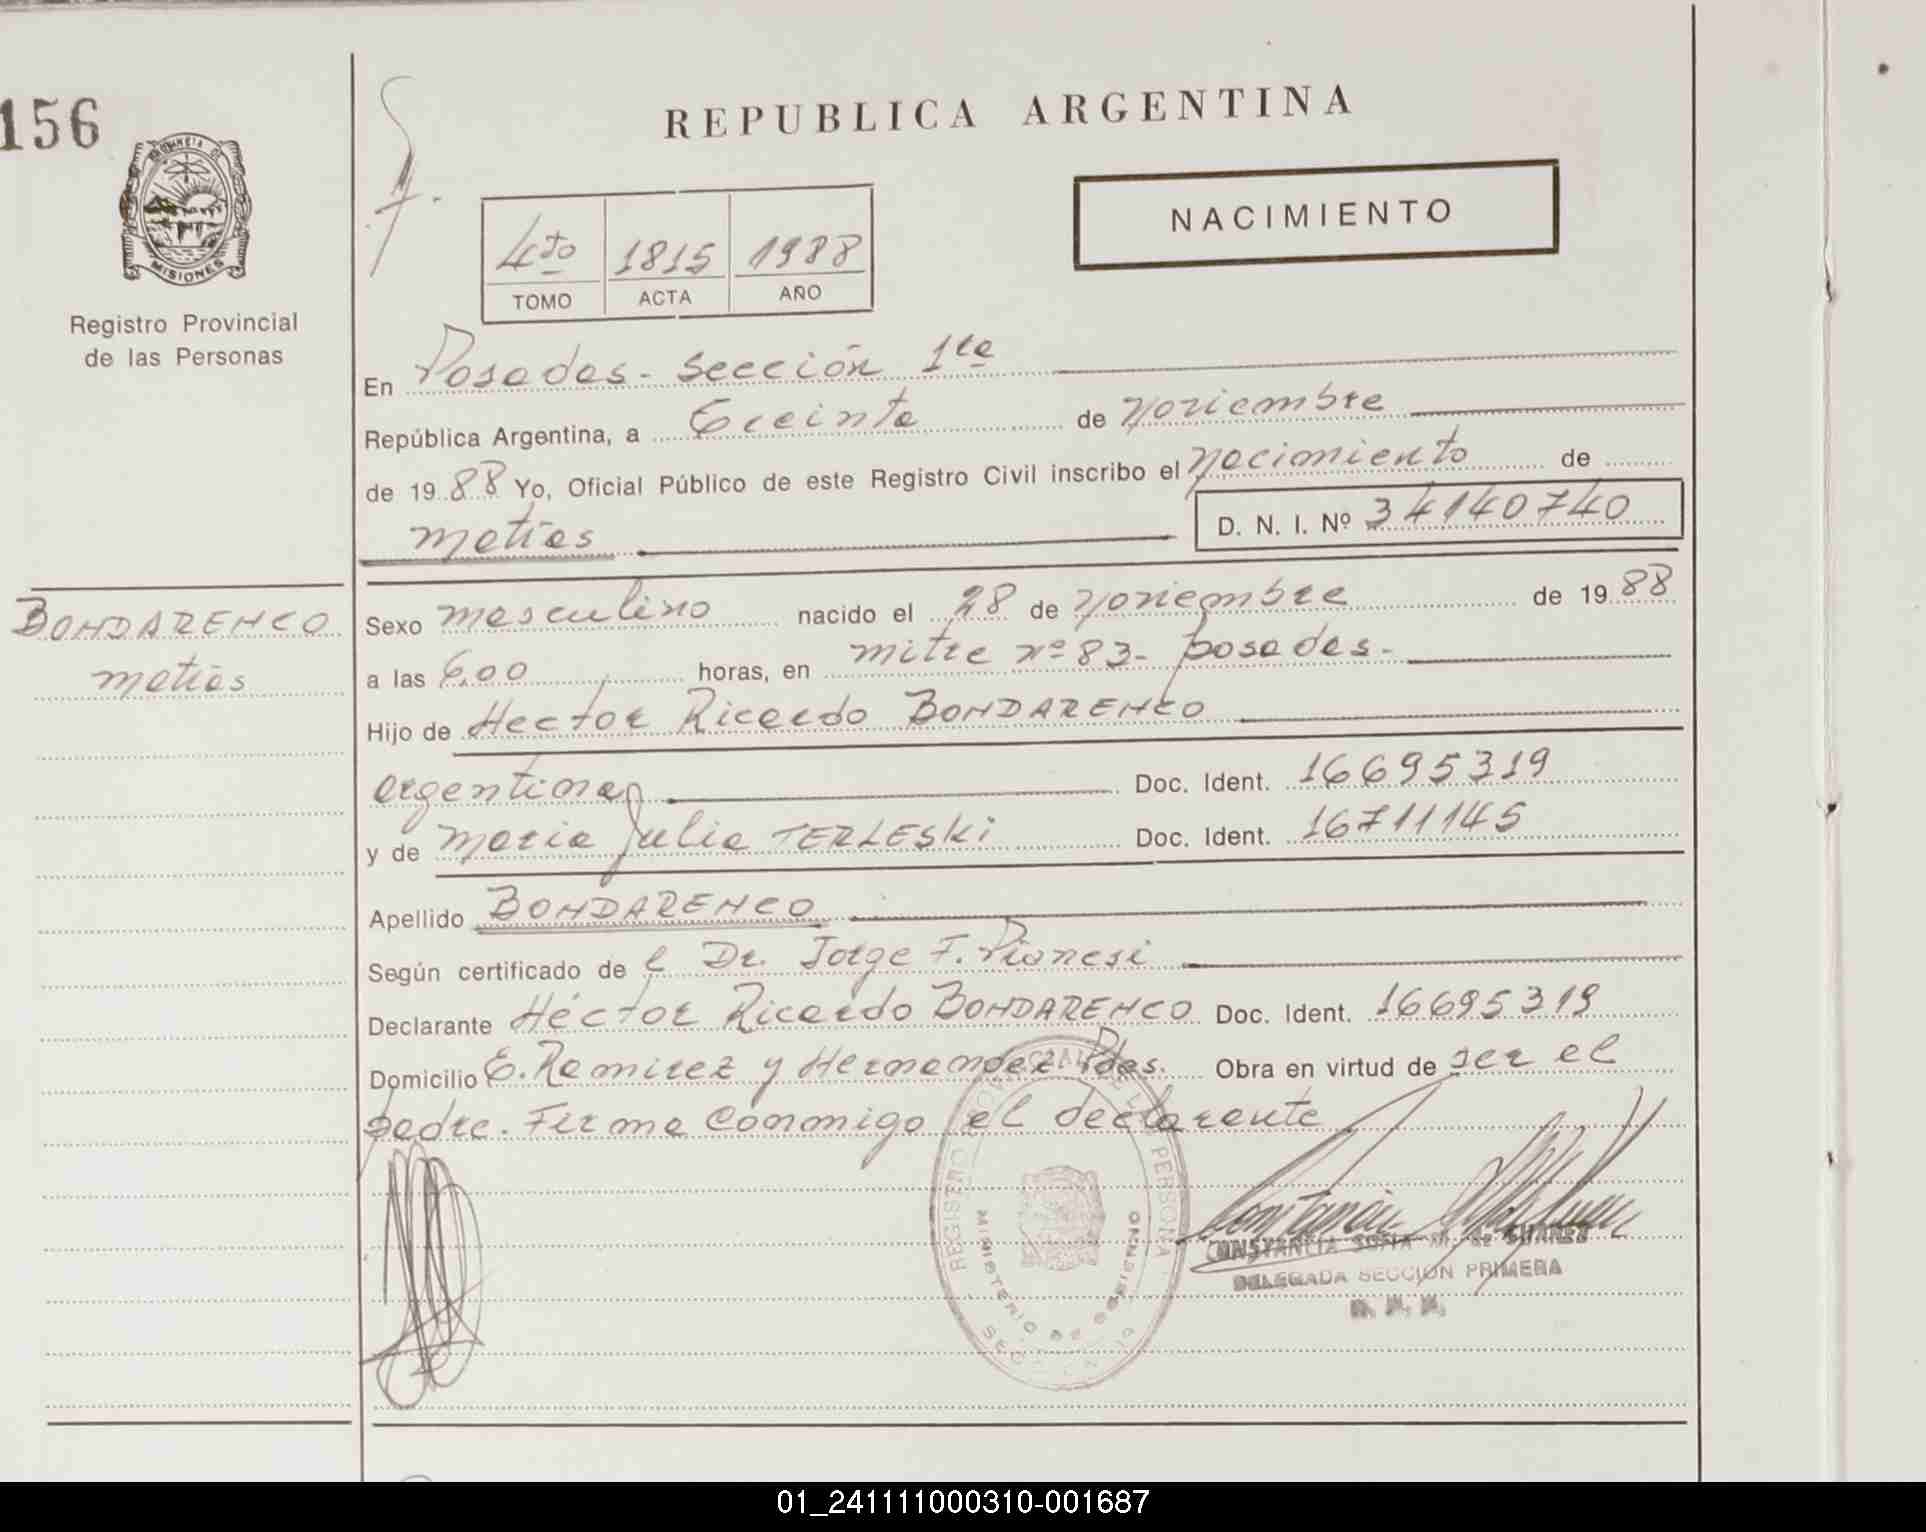 156
PROVINCIA DE
MISIONES
Registro Provincial
de las Personas
BONDARENCO
Matías
REPUBLICA ARGENTINA
NACIMIENTO
4to 1815 1988
TOMO ACTA AÑO
En Posadas - Sección 1ra
República Argentina, a treinta de noviembre
de 1988 Yo, Oficial Público de este Registro Civil inscribo el nacimiento de
Matías D. N. I. Nº 34140740
Sexo masculino nacido el 28 de noviembre de 1988
a las 6,00 horas, en mitre nº 83 - posadas -
Hijo de Hector Ricardo BONDARENCO
argentina Doc. Ident. 16695319
y de María Julia TERLESKi Doc. Ident. 16711145
Apellido BONDARENCO
Según certificado de l Dr. Jorge F. Pianesi
Declarante Héctor Ricardo BONDARENCO Doc. Ident. 16695319
Domicilio E. Ramirez y Hernandez Pdas. Obra en virtud de ser el
padre. Firma conmigo el declarante
CONSTANCIA SOFIA M. de
DELEGADA SECCION PRIMERA
REGISTRO PROVINCIAL DE LAS PERSONAS
MINISTERIO DE GOBIERNO
01_241111000310-001687